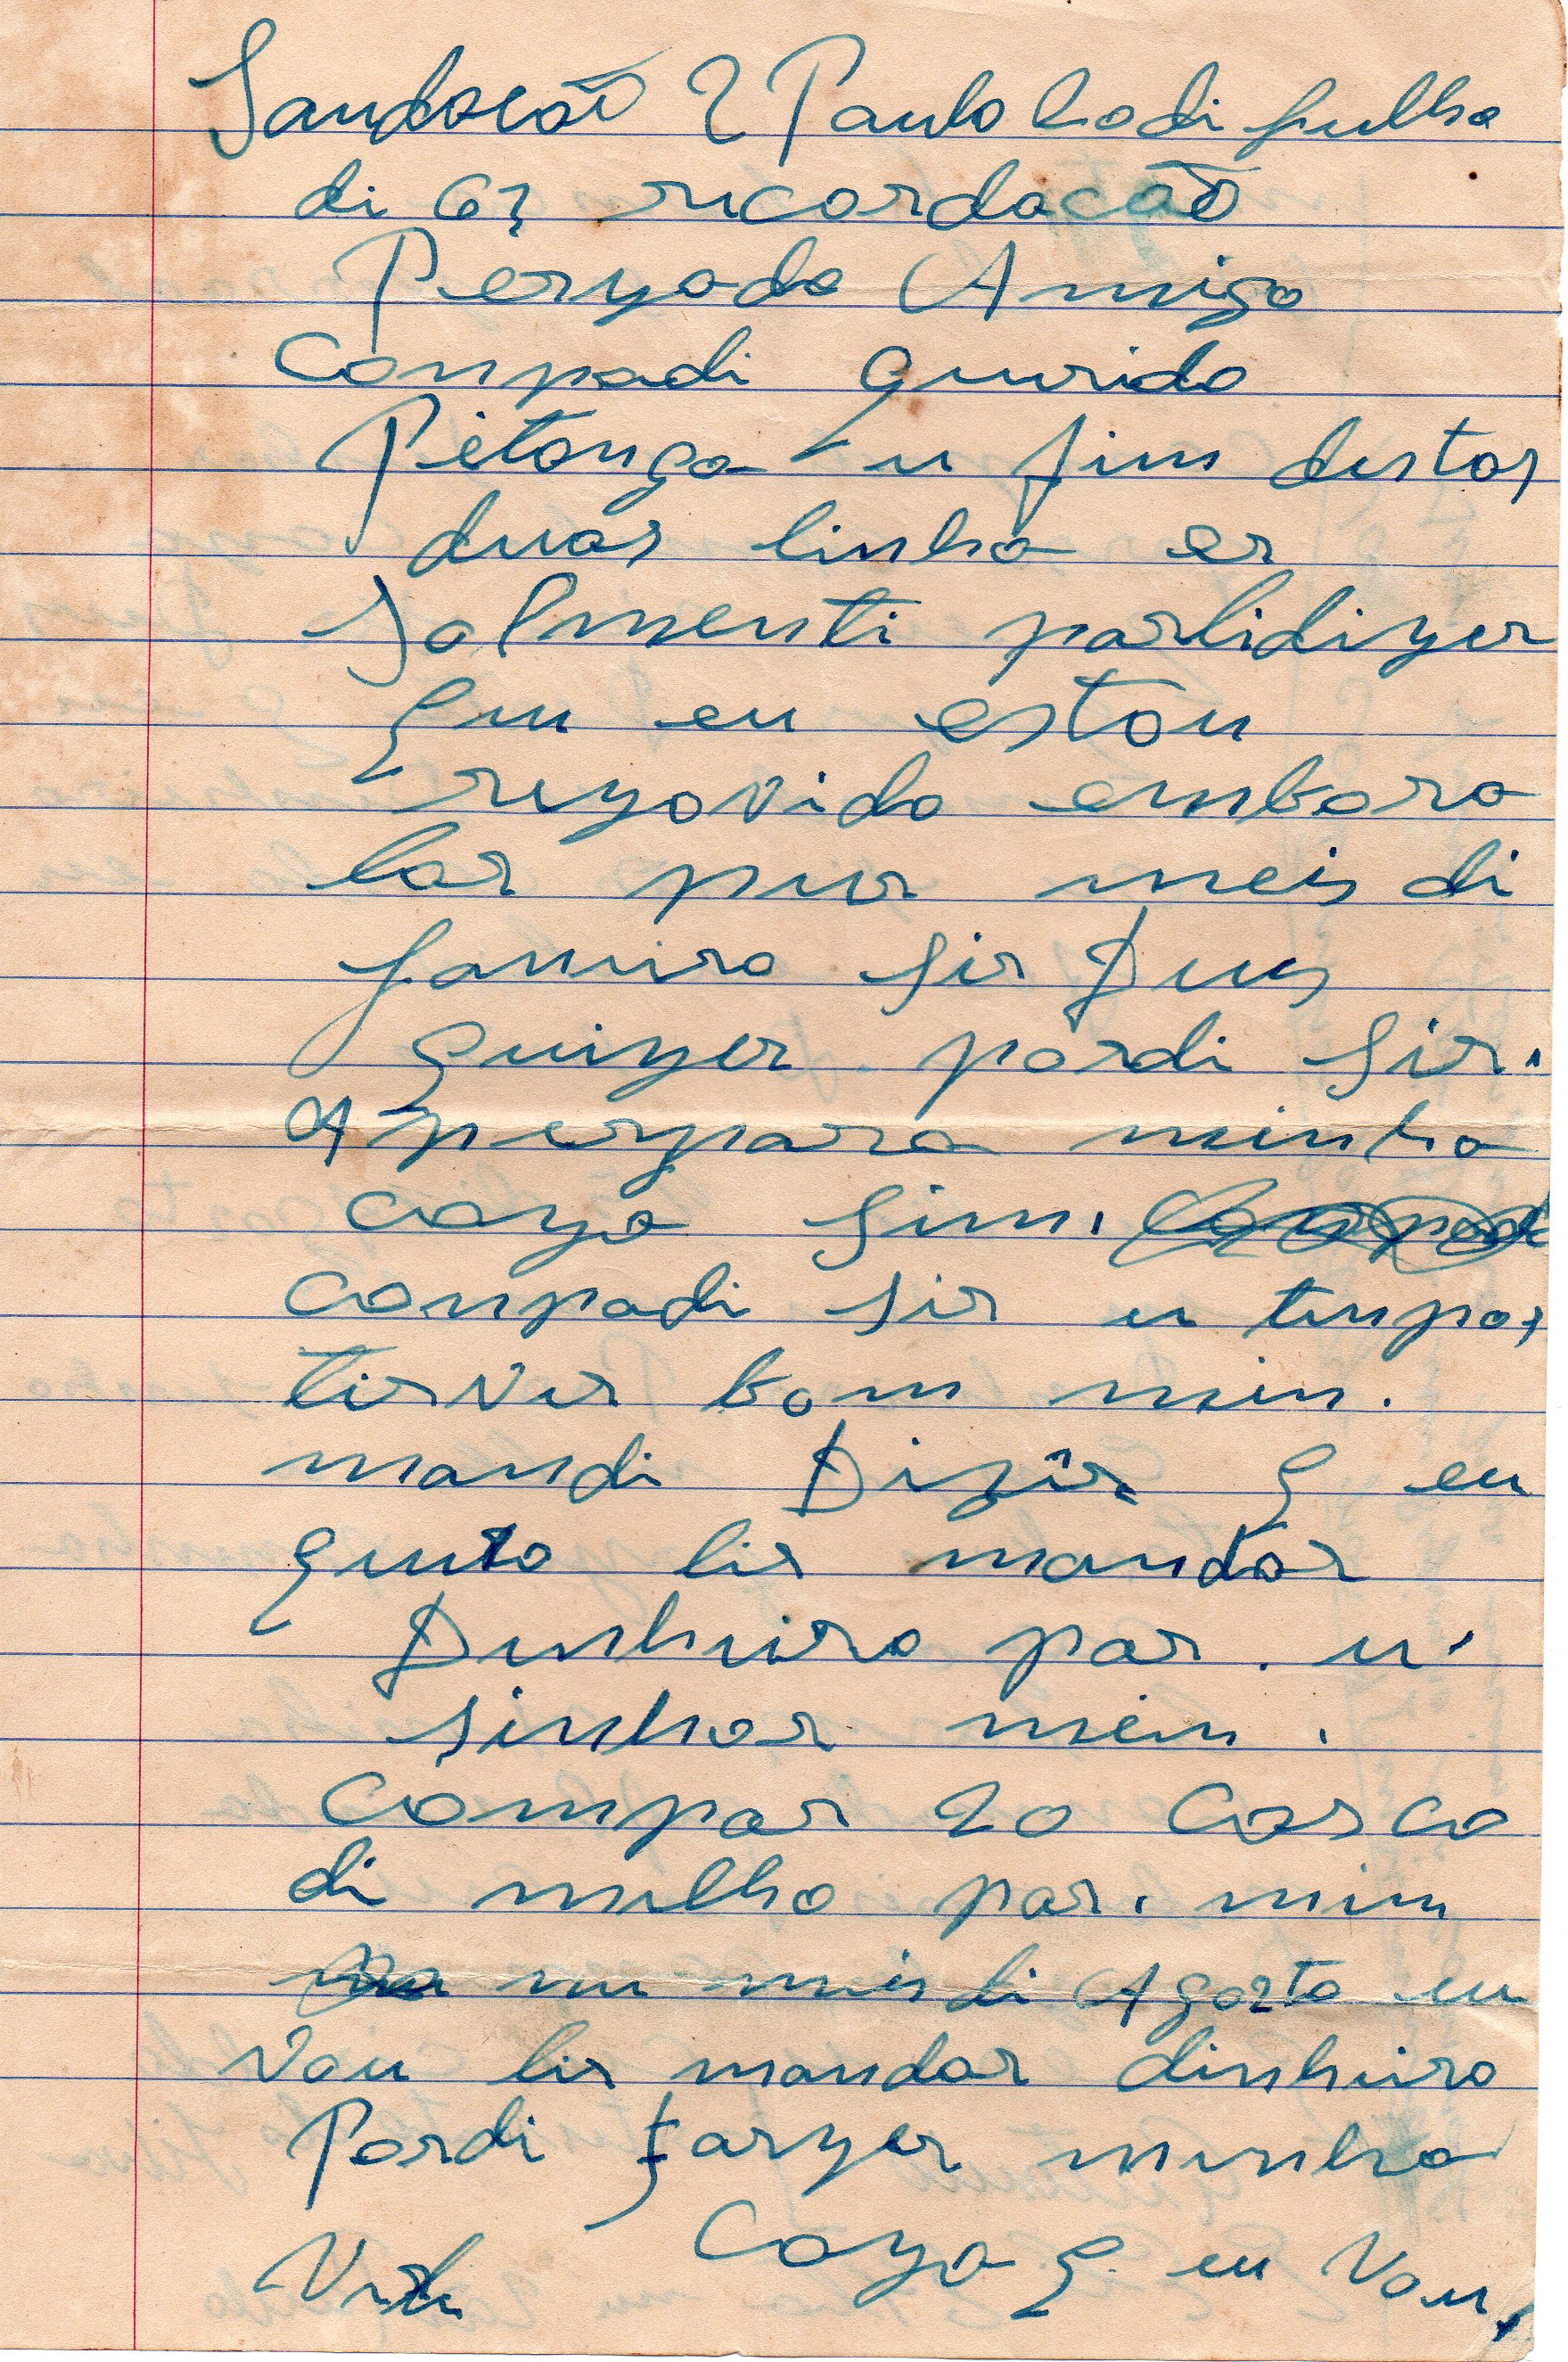 Sandocão 2 Paulo hodi fulho
di 67 ricordacão
Perzado Amigo
Conpadi Qurido
Pètonga u fim destas
duas linha er
Solmenti parlidizer
qu eu estou
rezovido enbora
lar pur meis di
Janiro Sir Dus
quizer pordi Sir.
Aperpara minha
caza Sim.
Conpadi Sir u tenpos
tirvir bom min.
mandi Dizir q eu
quro lir mandar
Dinhiro par. u
Sinhor mim.
Compar 20 Carca
di milho par. mim
nu meis di Agosto eu
Vou lir mandar dinhiro
Pordi farzer minha
Caza q eu Vou,
Virti